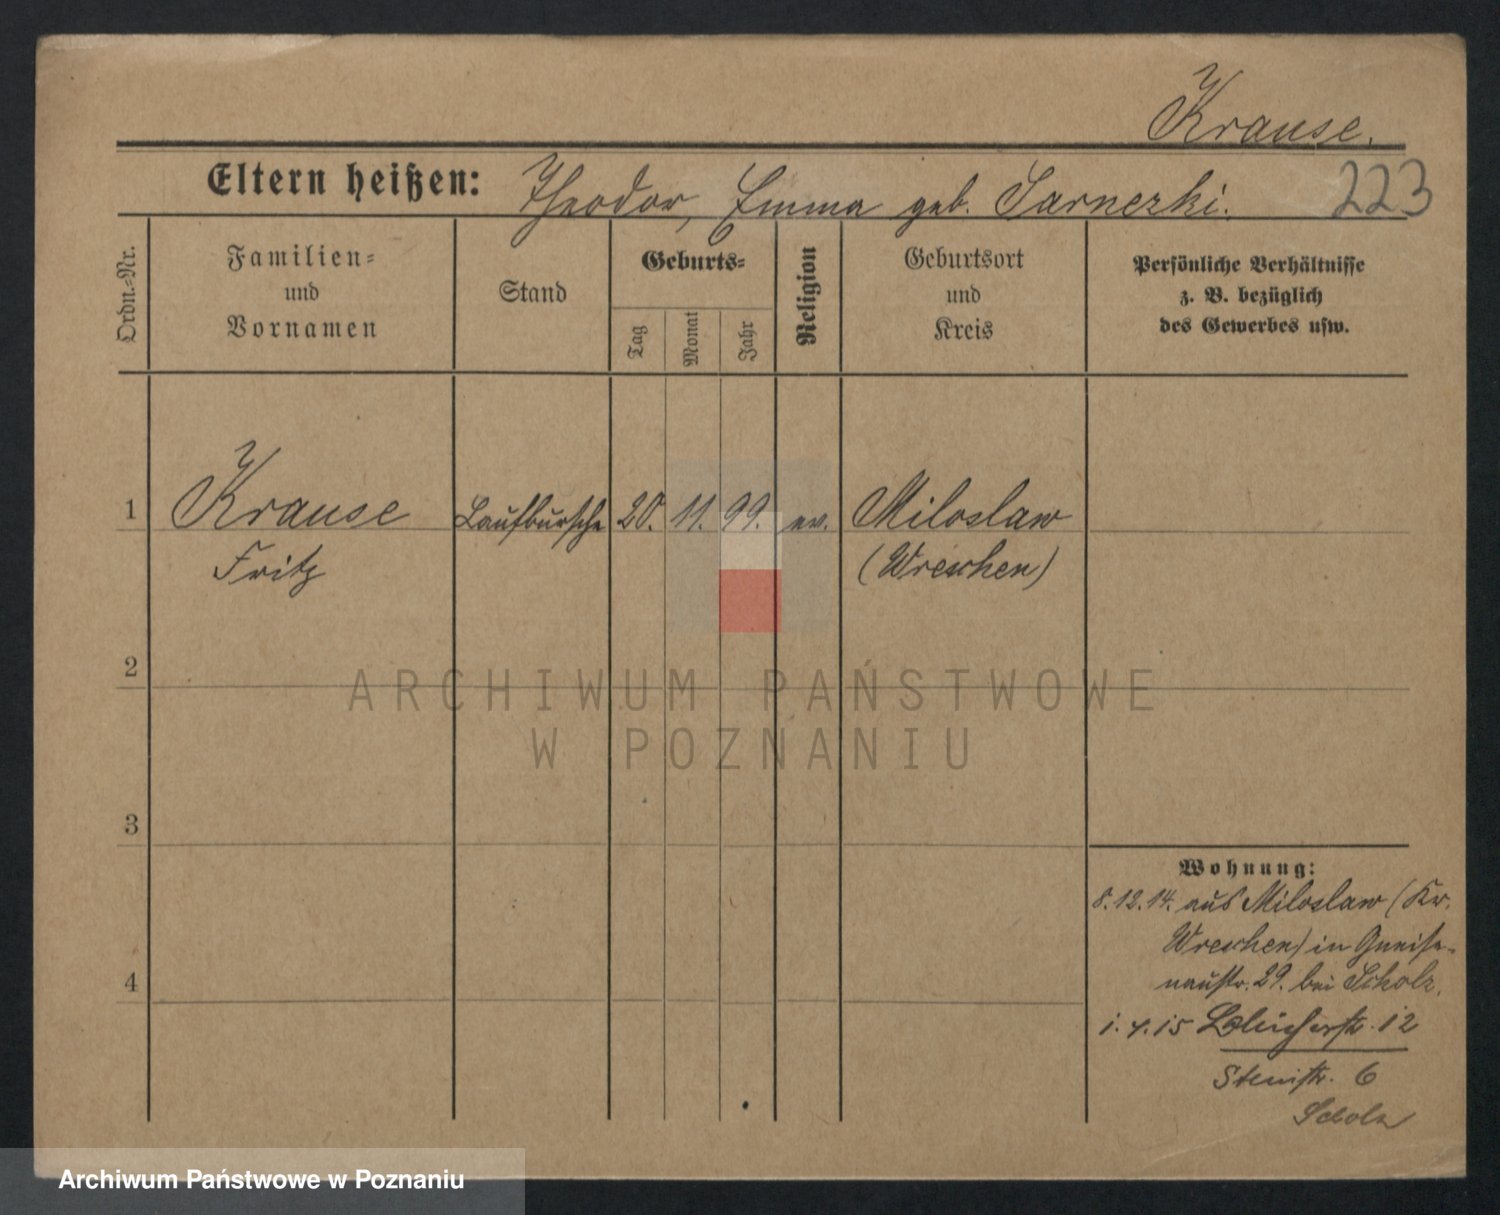 Krause.
Eltern heißen: Theodor, Emma geb. Sarnezki.
223
Ordn.-Nr.
Familien-
und
Vornamen
Stand
Geburts-
Tag
Monat
Jahr
Religion
Geburtsort
und
Kreis
Persönliche Verhältnisse
z. B. bezüglich
des Gewerbes usw.
1 Krause Laufbursche 20. 11. 99. ev. Miloslaw
Fritz (Wreschen)
2
ARCHIWUM PAŃSTWOWE
W POZNANIU
3
Wohnung:
8.12.14. aus Miloslaw (Kr.
Wreschen) in Gneise-
naustr. 29. bei Scholz.
4
1.4.15 Blücherstr. 12
6
Scholz
Archiwum Państwowe w Poznaniu